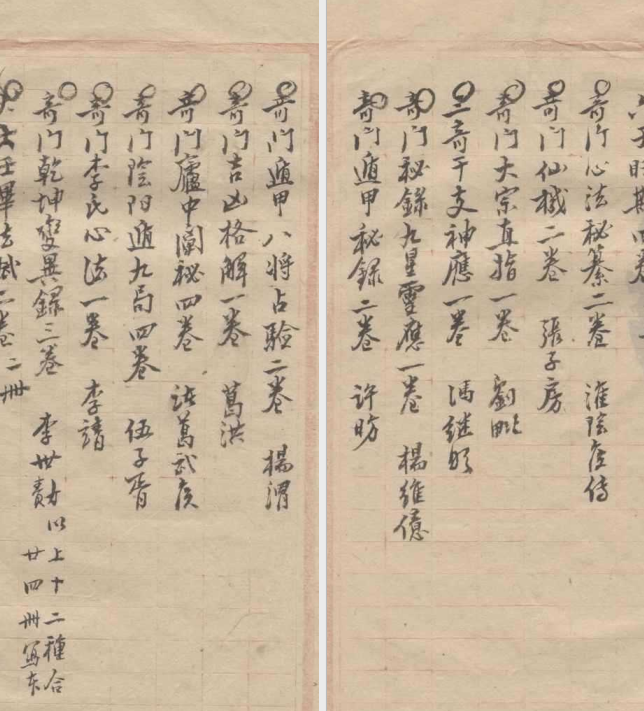 奇門心法秘纂二卷 淮陰侯傳
奇門仙機二卷 張子房
奇門大宗直指一卷 劉毗
三奇干支神應一卷 馮継明
奇門秘錄九星霊應一卷 楊維億
奇門遁甲秘録二卷 許昉
奇門遁甲八將占驗二卷 楊渭
奇門吉凶格解一卷 葛洪
奇門廬中闡秘四卷 諸葛武侯
奇门陰阳遁九局四卷 伍子胥
奇門李氏心法一卷 李靖
奇門乾坤變異録三卷 李世勣 以上十二種合廿四冊寫本
大六壬畢法賦二卷 二冊